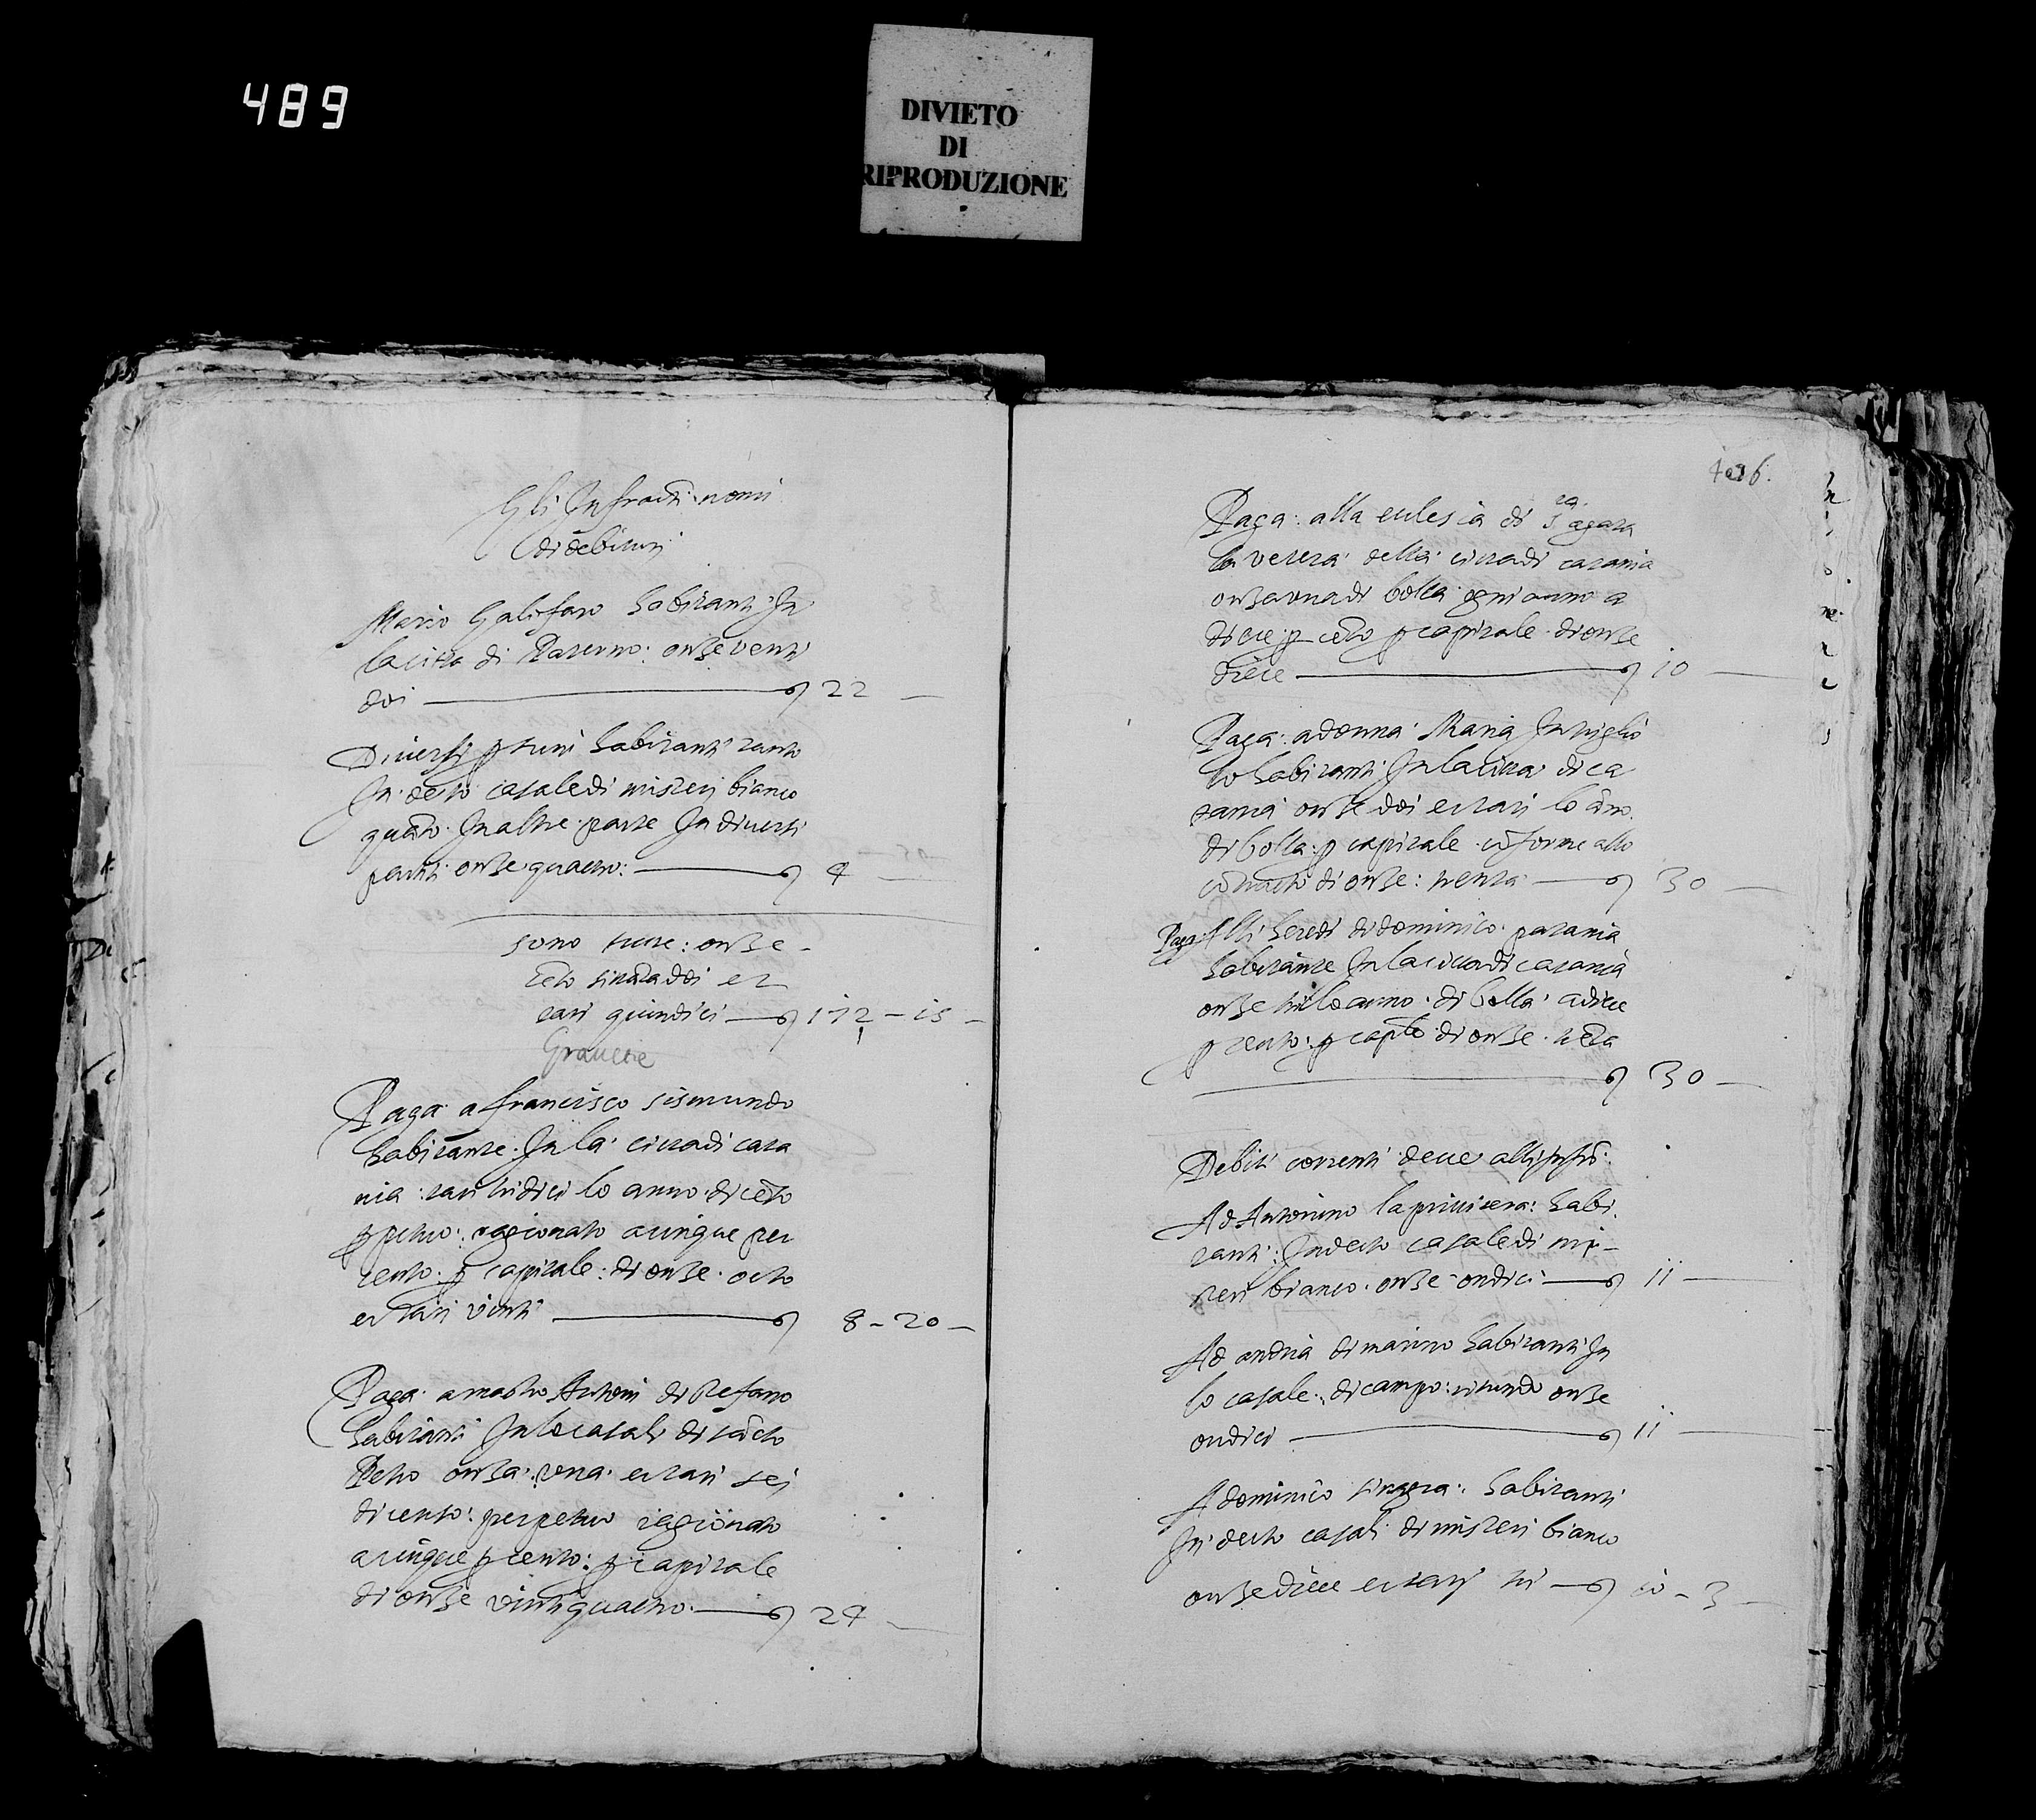 489
DIVIETO
DI
RIPRODUZIONE
Gli Infracti nomi
di debituri
Mario Galifaro habitanti In
la citta di Paterno: onze venti
doi 22
Diversi persuni habitanti tanto
In detto casale di misteri bianco
quanto In altre parte In diversi
partiti onze quattro: 4
sono tutte: onze
cento sittanta doi et
tari quindici 172 - 15
Gravezze
Paga a francisco sismundo
habitante In la citta di cata
nia tari tridici lo anno di censo
perpetuo: ragionato a cinque per
cento p capitale: di onze octo
et tari vinti 8 - 20
Paga a mastro Antoni di stefano
habitanti In lo casali di sancto
Petro onza una et tari sei
di censo: perpetuo ragionato
a cinque p cento: p capitale
di onze vintiquattro 24
406.
Paga: alla eclesia di s.ta agata
la vetera della citta di catania
onza una di bolla ogni anno a
diece p cento p capitale di onze
diece 10
Paga: a donna Maria Intriglio
lo habitanti In la citta di ca
tania onze doi et tari lo anno
di bolla p capitale conforme allo
contracto di onze: trenta 30
Paga Alli heredi di dominico patania
habitante In la citta di catania
onze tri lo anno di bolla a diece
p cento: p capitale di onze trenta
30
Debiti correnti deve alli infri
Ad Antonino la privitera: habi
tanti: In detto casale di mis
teri bianco onze ondici 11
Ad andria di marino habitanti In
lo casale: di campo: ritundo onze
ondici 11
A dominico tingora: habitanti
In detto casali di misteri bianco
onze diece et tari tri 10 - 3